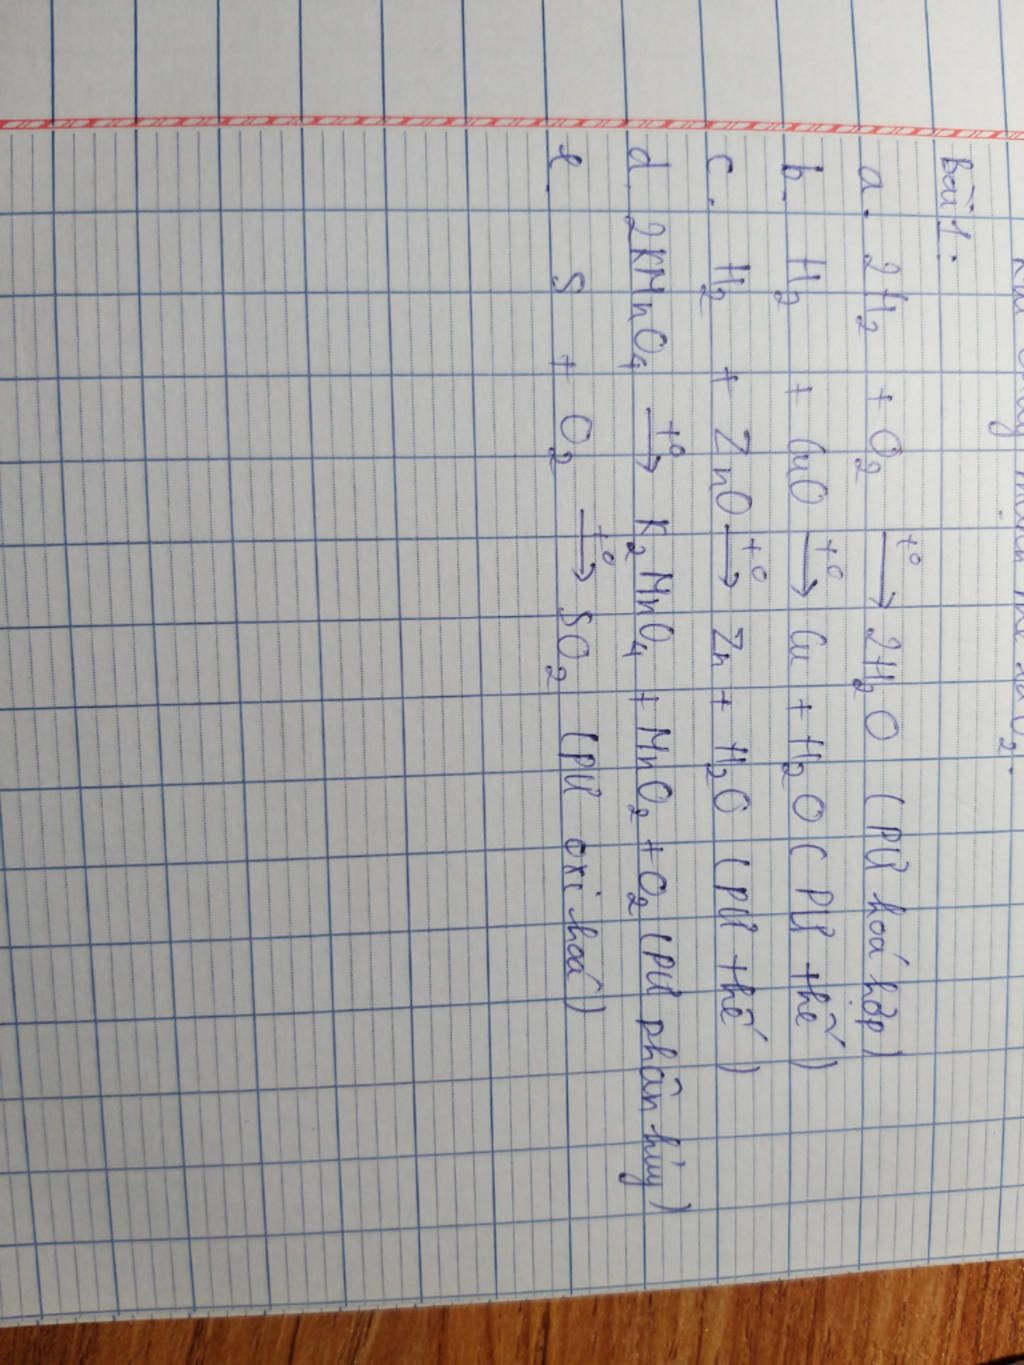 khí cháy mãnh O₂.
Bài 1:
a. 2H₂ + O₂ →t° 2H₂O (PƯ hoá hợp)
b. H₂ + CuO →t° Cu + H₂O (PƯ thế)
c. H₂ + ZnO →t° Zn + H₂O (PƯ thế)
d. 2KMnO₄ →t° K₂MnO₄ + MnO₂ + O₂ (PƯ phân hủy)
e. S + O₂ →t° SO₂ (PƯ oxi hoá)